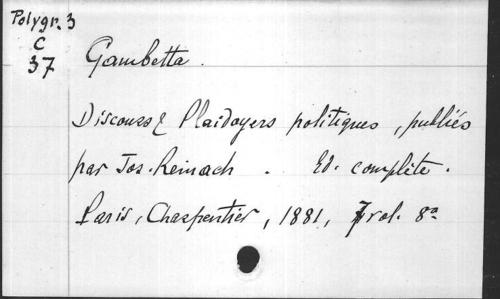 Polygr. 3
C
37
Gambetta.
Discours & Plaidoyers politiques, publiés
par Jos. Reinach. Ed. complète.
Paris, Charpentier, 1881, 7 vol. 8º